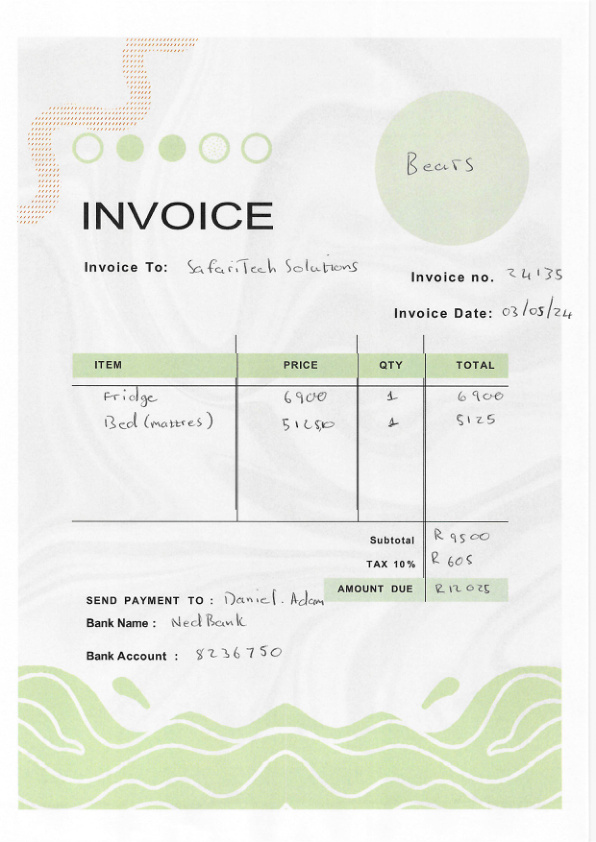 Bears
INVOICE
Invoice To: SafariTech Solutions
Invoice no. 24135
Invoice Date: 03/05/24
ITEM PRICE QTY TOTAL
Fridge 6900 1 6900
Bed (mattres) 1 5125
Subtotal R 9500
TAX 10% R 605
AMOUNT DUE R12025
SEND PAYMENT TO : Daniel. Adam
Bank Name : NedBank
Bank Account : 8236750